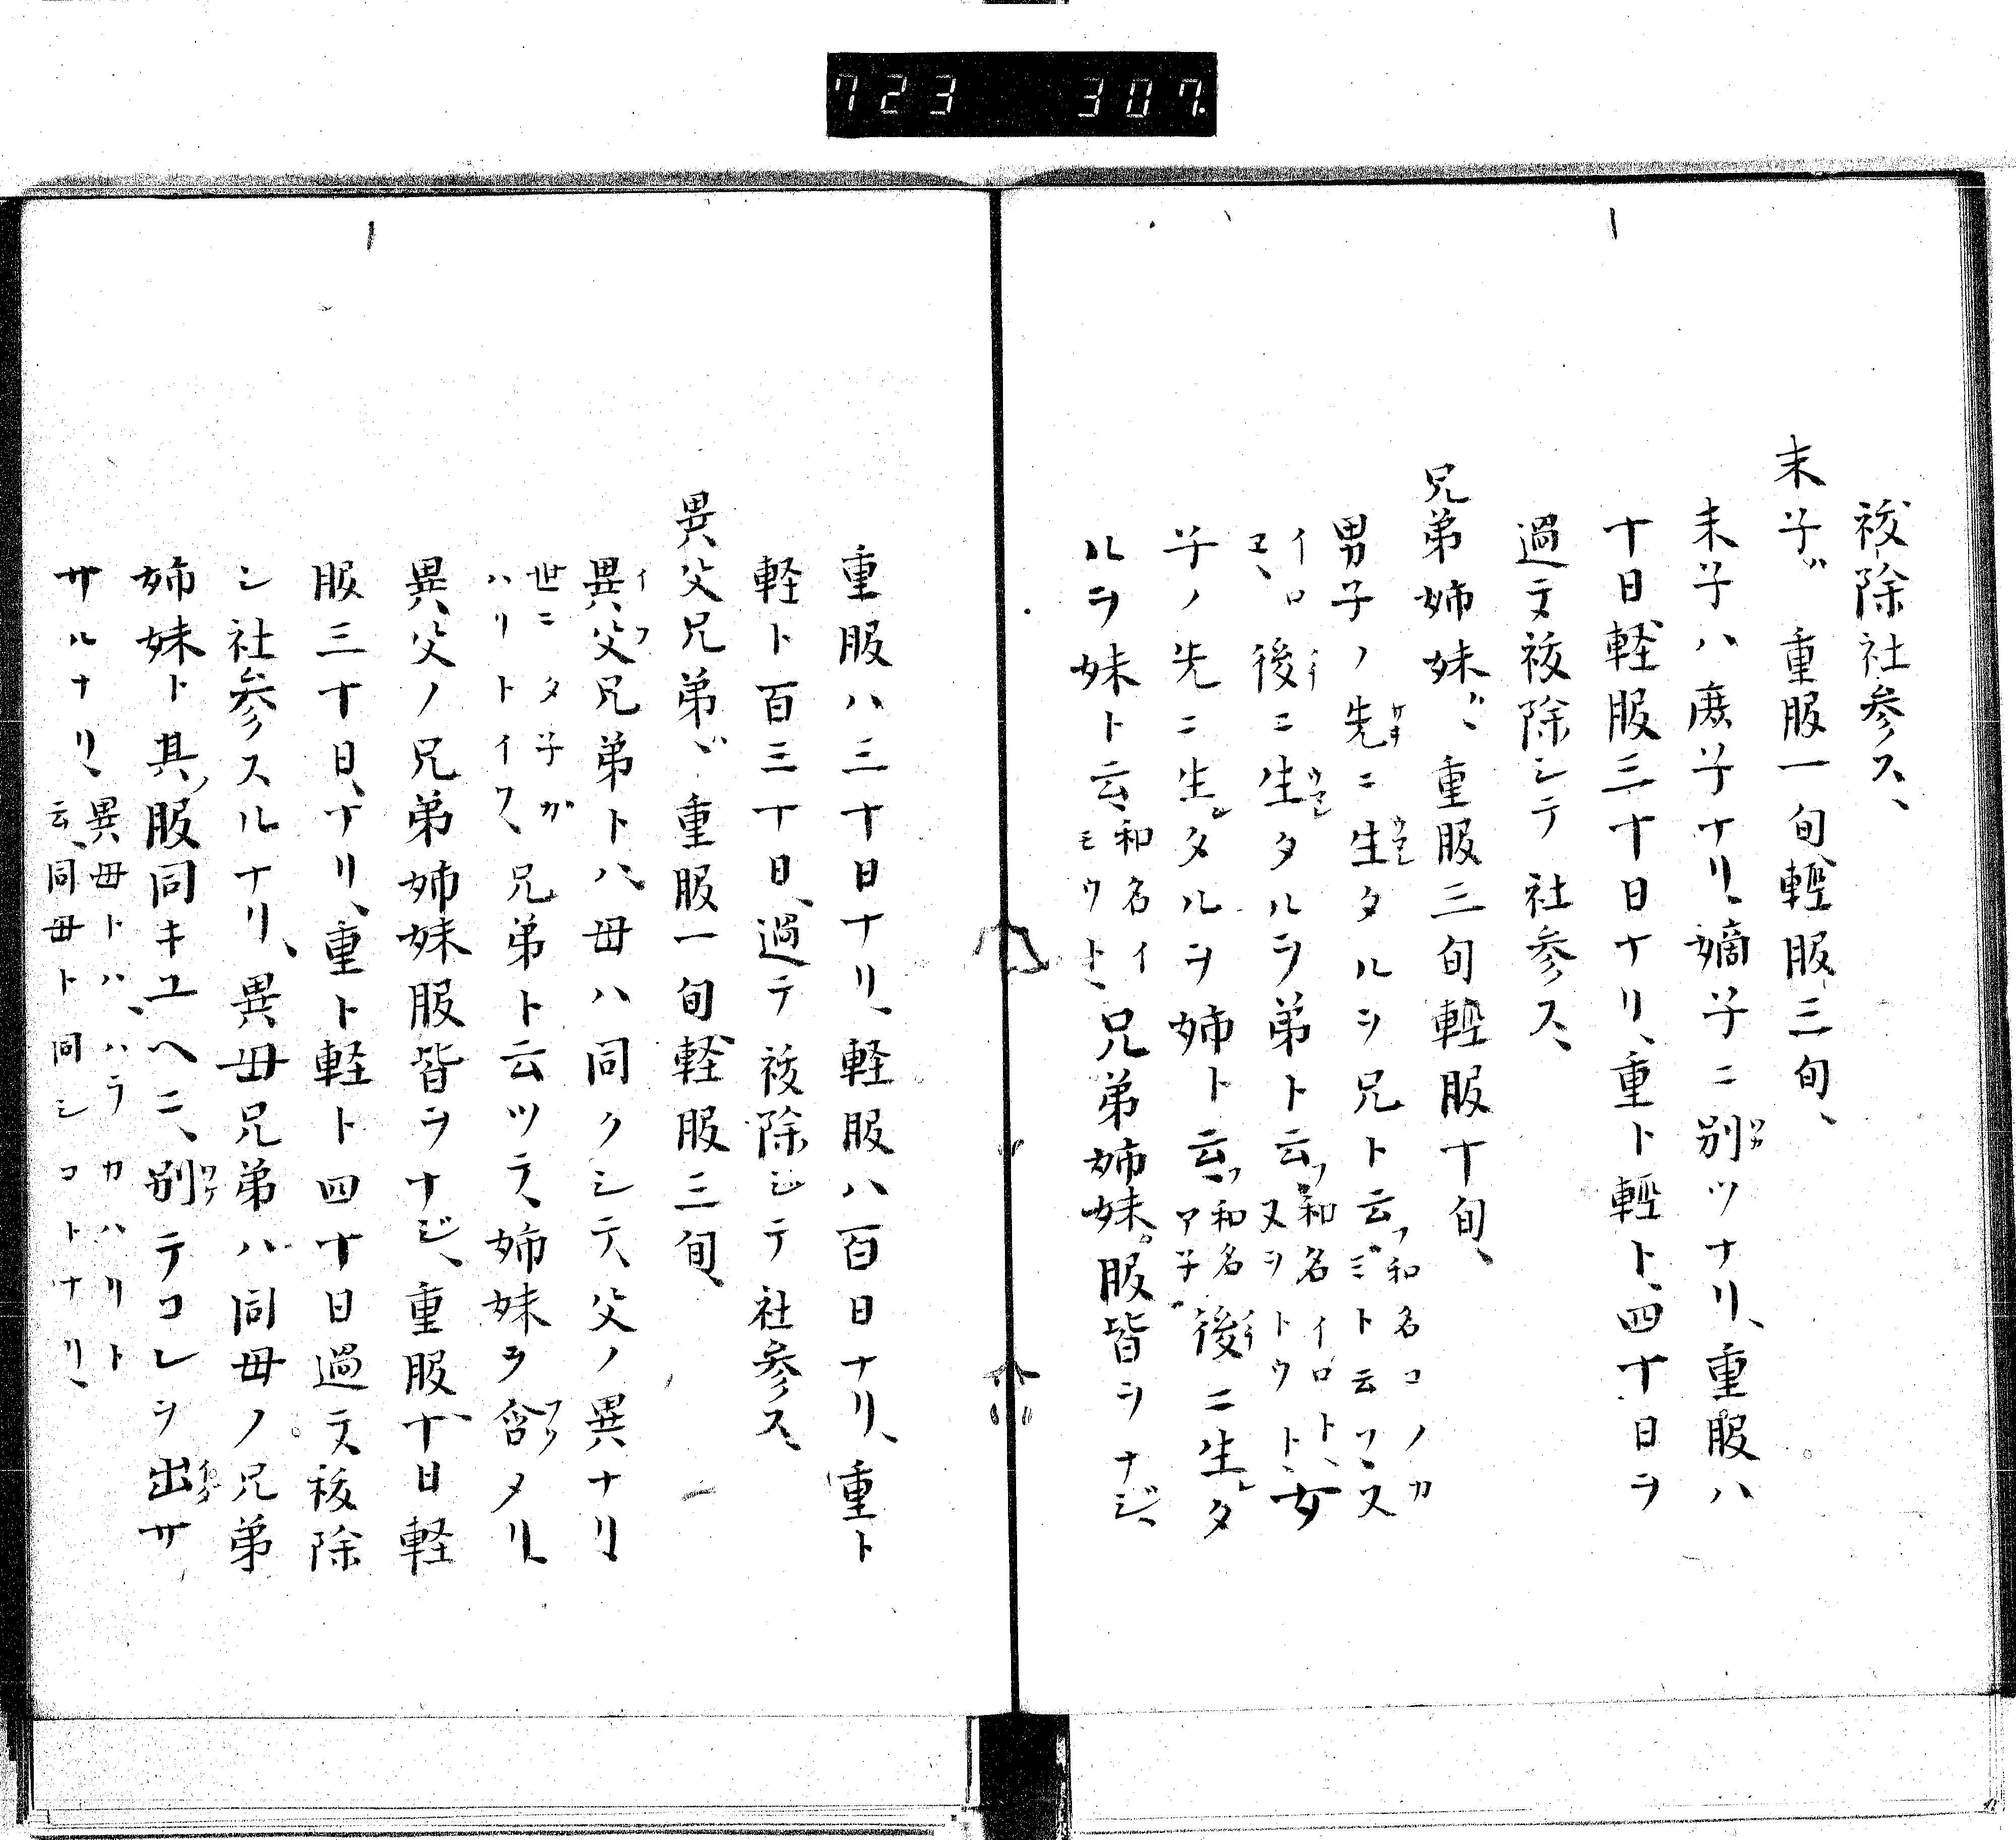 723 307
祓除社参ス、
末子ハ 重服一旬軽服三旬、
末子ハ庶子ナリ、嫡子ニ別ツナリ、重服ハ
十日軽服三十日ナリ、重ト軽ト、四十日ヲ
過テ祓除シテ社参ス、
兄弟姉妹ハ、重服三旬軽服十旬、
男子ノ先ニ生タルヲ兄ト云、和名コノカミト云フ、又
イロエ、後ニ生タルヲ弟ト云、和名イロト、又ヲトウト、女
子ノ先ニ生タルヲ姉ト云、和名ア子、後ニ生タ
ルヲ妹ト云、和名イモウト、兄弟姉妹、服皆ヲナジ、
重服ハ三十日ナリ、軽服ハ百日ナリ、重ト
軽ト百三十日、過テ祓除シテ社参ス、
異父兄弟ハ、重服一旬軽服三旬、
異父兄弟トハ、母ハ同クシテ、父ノ異ナリ
世ニタ子ガハリトイフ、兄弟ト云ツテ、姉妹ヲ含メリ、
異父ノ兄弟姉妹服皆ヲナジ、重服十日軽
服三十日、ナリ、重ト軽ト四十日過テ、祓除
シ社参スルナリ、異母兄弟ハ同母ノ兄弟
姉妹ト其服同キユヘニ、別テコレヲ出サ
サルナリ、異母トハ、ハラカハリト云、同母ト同シコトナリ、